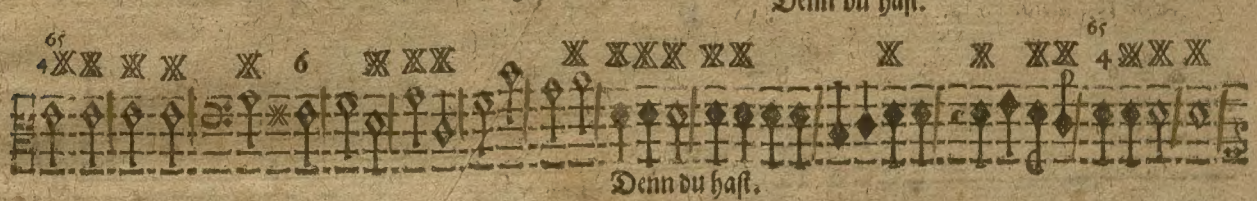 Denn du hast.
65 65
4 6 4
Denn du hast.